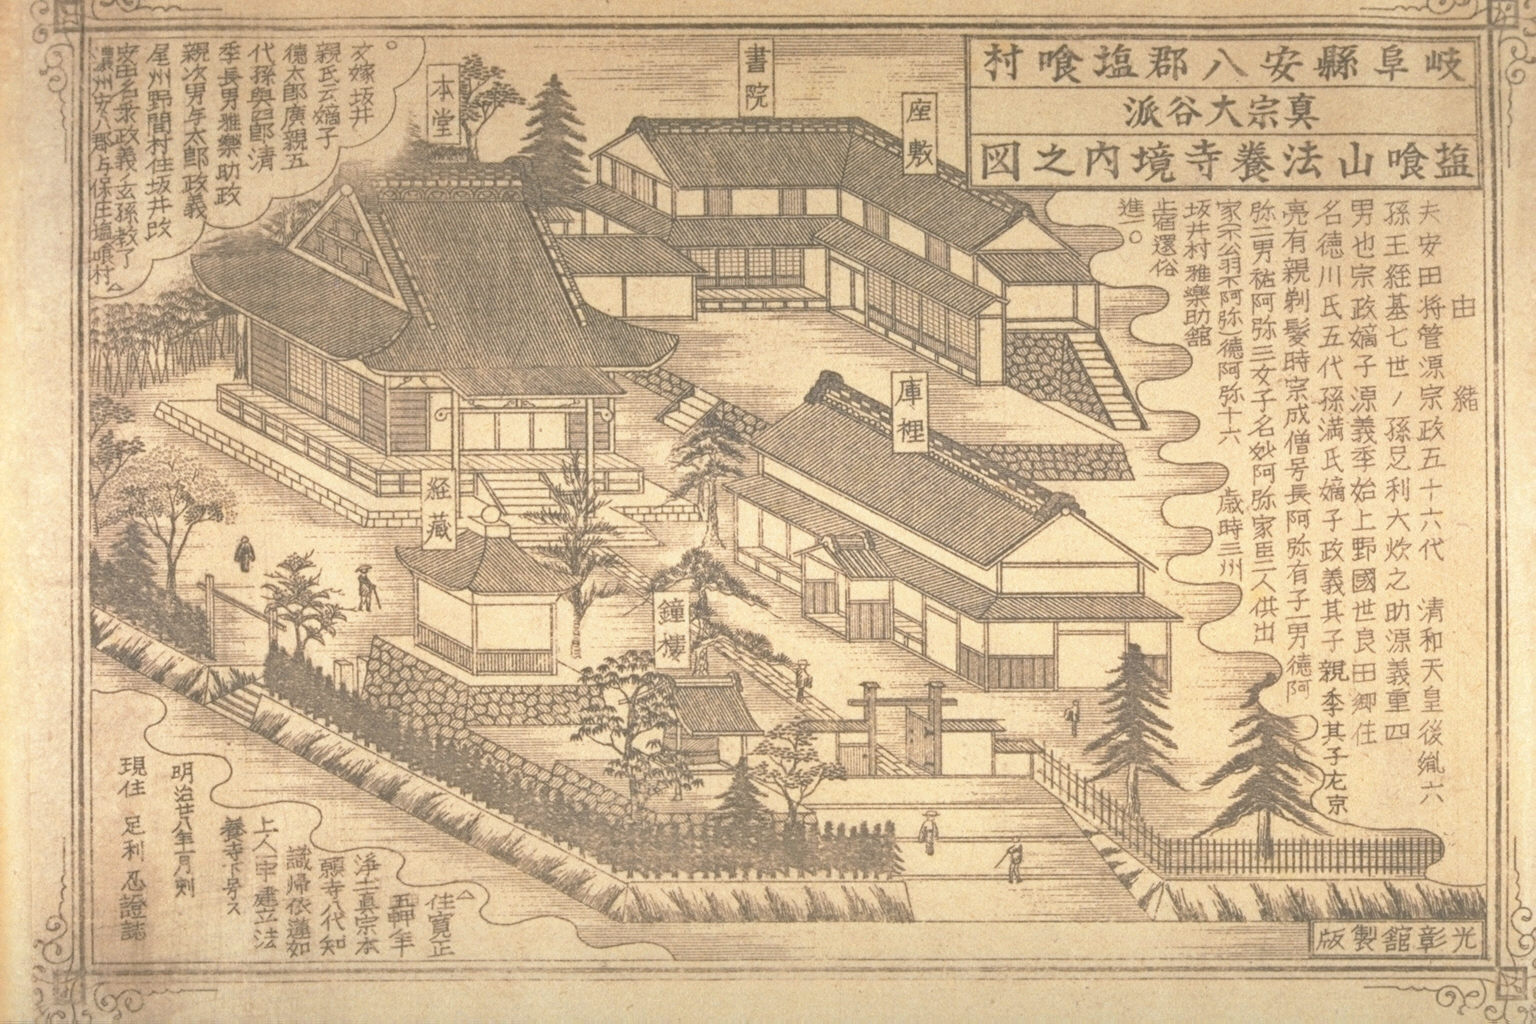 岐阜縣安八郡塩喰村
真宗大谷派
塩喰山法養寺境内之図
由緒
夫安田将管源宗政五十六代 清和天皇後胤六
孫王経基七世ノ孫足利大炊之助源義重四
男也宗政嫡子源義季始上野國世良田郷住
名徳川氏五代孫満氏嫡子政義其子親季其子左京
亮有親剃髪時宗成僧号長阿弥有子一男徳阿
弥二男祐阿弥三女子名妙阿弥家臣二人供出
家宗公羽不阿弥徳阿弥十六 歳時三州
坂井村雅樂助舘
止宿還俗
進一○
○
文嫁坂井
親氏云嫡子
徳太郎廣親五
代孫與四郎清
季長男雅樂助政
親次男与太郎政義
尾州野間村住坂井改
安田名乗政義玄孫教了
濃州安八郡与保庄塩喰村△
△
住寛正
五甲申年
浄土真宗本
願寺八代知
識帰依蓮如
上人
建立法
養寺下号ス
明治廿八年一月刻
現住 足利忍證誌
本堂
書院
座敷
庫裡
経藏
鐘楼
光彰舘製版